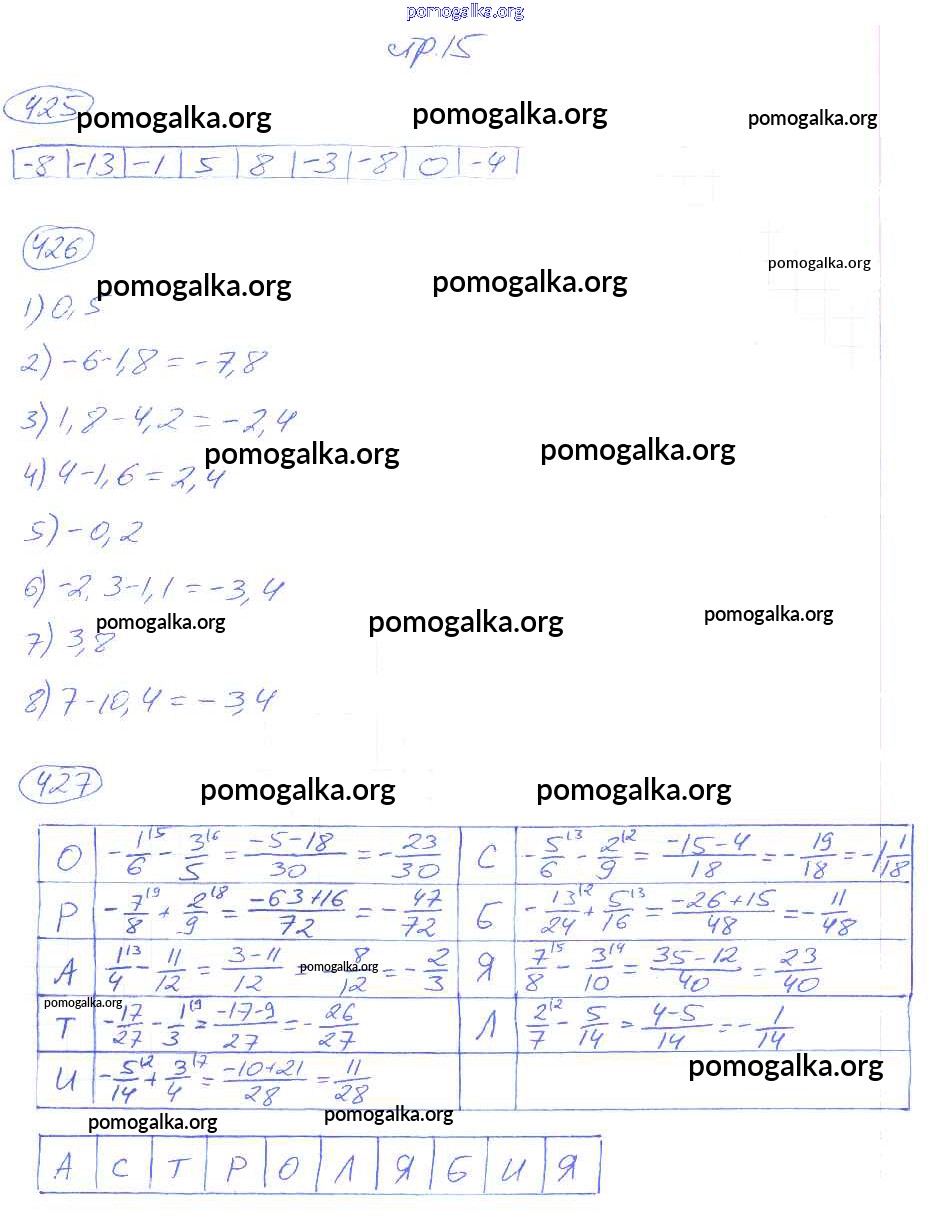 pomogalka.org
стр.15
425 pomogalka.org pomogalka.org pomogalka.org
-8 -13 -1 5 8 -3 -8 0 -4
426
pomogalka.org pomogalka.org pomogalka.org
1) 0,5
2) -6-1,8 = -7,8
3) 1,8-4,2 = -2,4
pomogalka.org pomogalka.org
4) 4-1,6 = 2,4
5) -0,2
6) -2,3-1,1 = -3,4
pomogalka.org pomogalka.org pomogalka.org
7) 3,8
8) 7-10,4 = -3,4
427 pomogalka.org pomogalka.org
О -1/6|5 - 3/5|6 = -5-18/30 = -23/30 С -5/6|3 - 2/9|2 = -15-4/18 = -19/18 = -1 1/18
Р -7/8|9 + 2/9|8 = -63+16/72 = -47/72 Б -13/24|2 + 5/16|3 = -26+15/48 = -11/48
А 1/4|3 - 11/12 = 3-11/12 pomogalka.org 8/12 = -2/3 Я 7/8|5 - 3/10|4 = 35-12/40 = 23/40
pomogalka.org
Т -17/27 - 1/3|9 = -17-9/27 = -26/27 Л 2/7|2 - 5/14 = 4-5/14 = -1/14
И -5/14|2 + 3/4|7 = -10+21/28 = 11/28 pomogalka.org
pomogalka.org pomogalka.org
А С Т Р О Л Я Б И Я